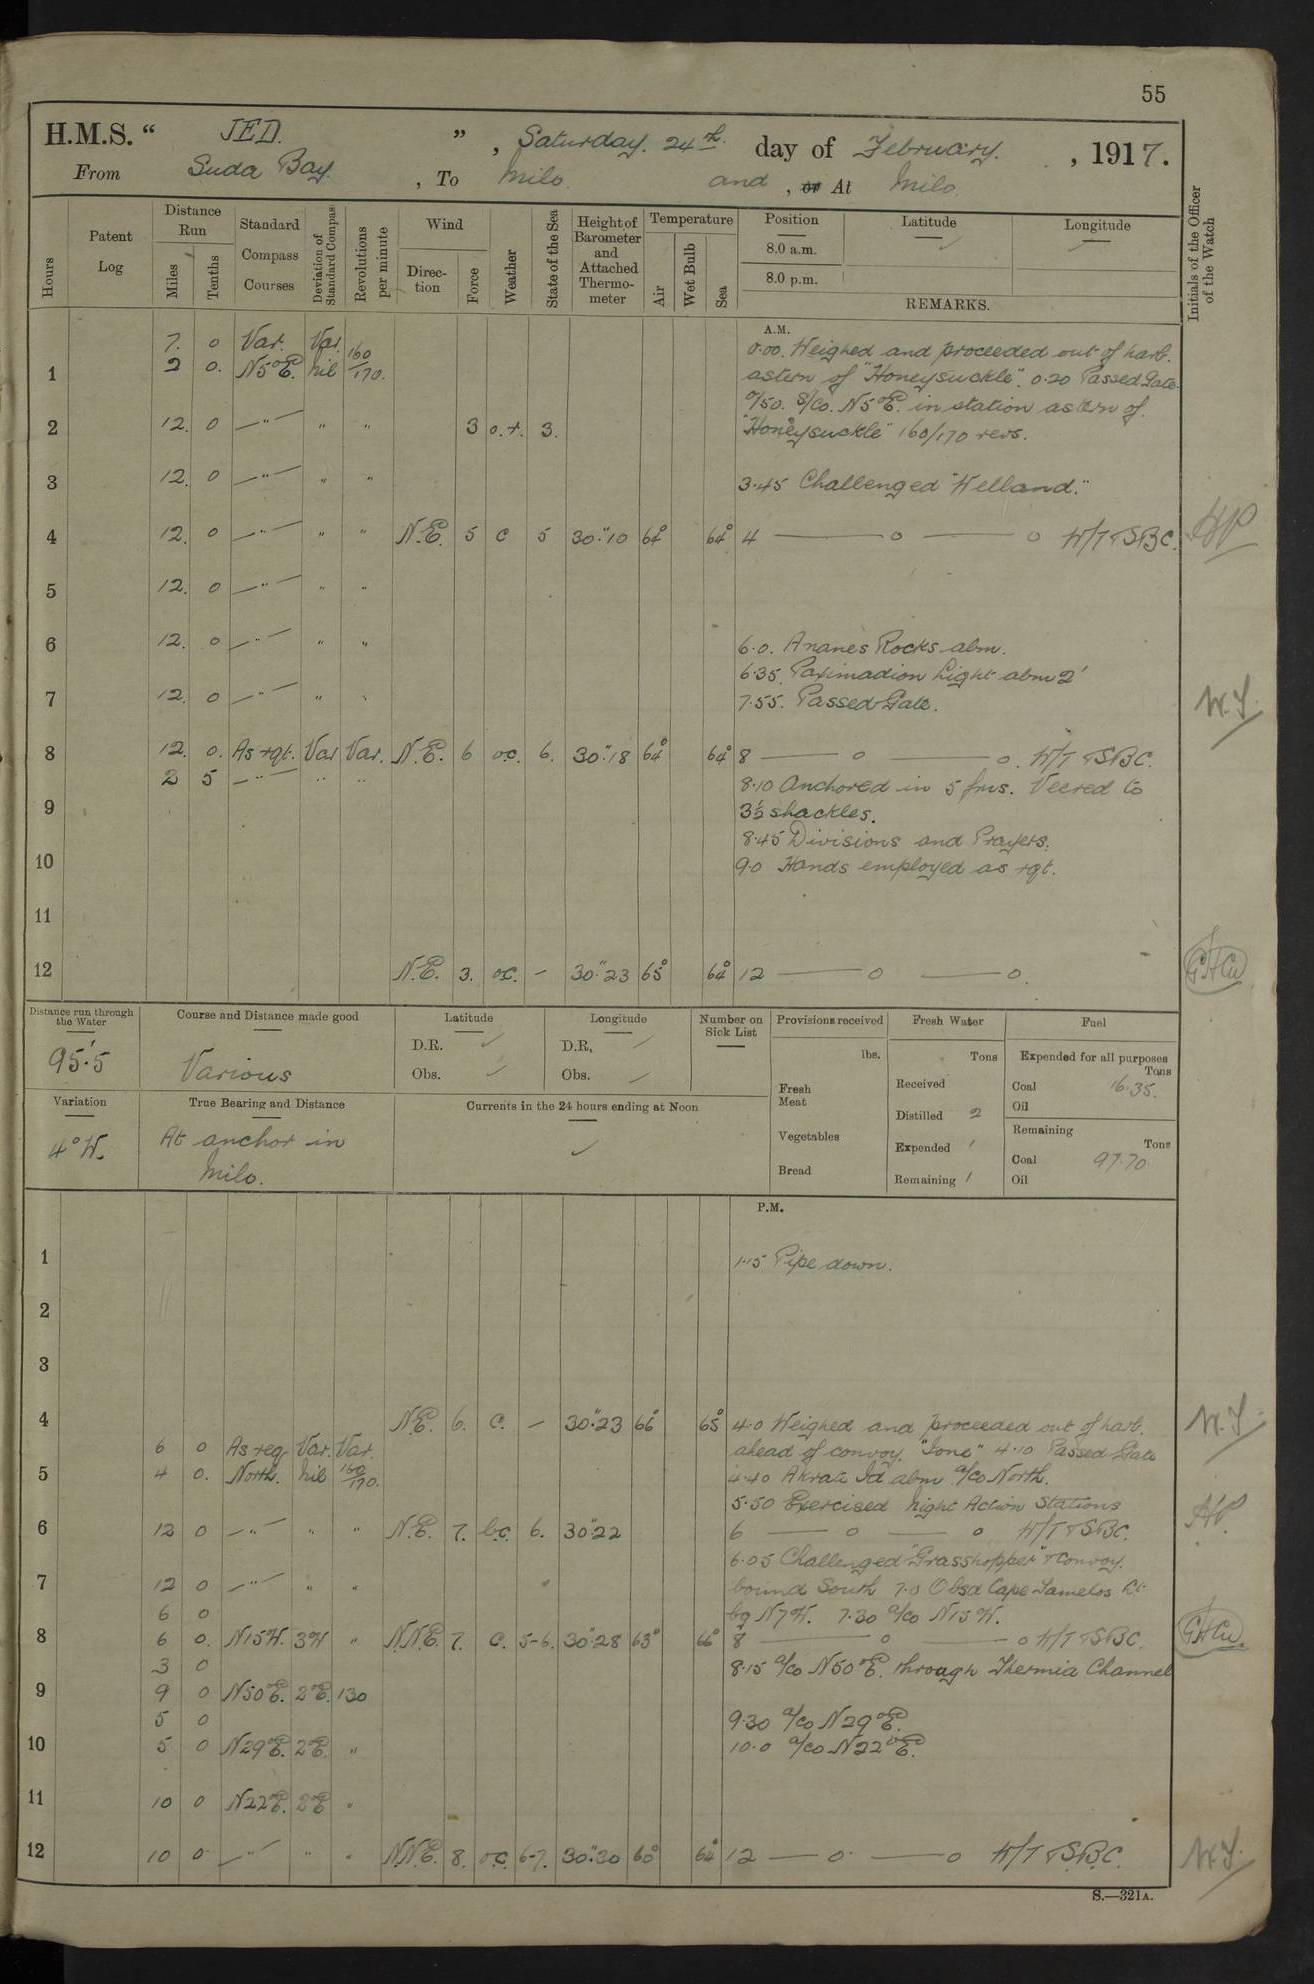 55
H.M.S. “ JED. ” , Saturday. 24th day of February. , 1917.
From Suda Bay. , To Milo. and , or At Milo.
Hours
Patent Log
Distance Run
Miles
Tenths
Standard Compass Courses
Deviation of Standard Compass
Revolutions per minute
Wind
Direction
Force
Weather
State of the Sea
Height of Barometer and Attached Thermometer
Temperature
Air
Wet Bulb
Sea
Position
Latitude
Longitude
8.0 a.m.
8.0 p.m.
REMARKS.
Initials of the Officer of the Watch
A.M.
7. 0 Var. Var. 0.00. Weighed and proceeded out of harb.
1 2 0. N5°E. nil 160/170. astern of "Honeysuckle". 0.20 Passed Gate.
0/50. S/Co. N5°E. in station astern of
2 12. 0 —"— " " 3 o.r. 3. "Honeysuckle" 160/170 revs.
3 12. 0 —"— " " 3.45 Challenged "Welland."
4 12. 0 —"— " " N.E. 5 c 5 30".10 64° 64° 4 — o — o W/T & SBC.
5 12. 0 —"— " "
6 12. 0 —"— " " 6.0. Ananes Rocks abm.
6.35. Paximadion Light abm 2'
7 12. 0 —"— " " 7.55. Passed Gate.
8 12. 0. As rqt. Var Var. N.E. 6 oc. 6. 30".18 64° 64° 8 — o — o. W/T & SBC.
2 5 —"— " " 8.10 Anchored in 5 fms. Veered to
9 3½ shackles.
8.45 Divisions and Prayers.
10 9.0 Hands employed as rqt.
11
12 N.E. 3. oc. – 30".23 65° 64° 12 — o — o.
Distance run through the Water
95'.5
Course and Distance made good
Various
Latitude
D.R.
Obs.
Longitude
D.R.
Obs.
Number on Sick List
Provisions received
lbs.
Fresh Meat
Vegetables
Bread
Fresh Water
Tons
Received
Distilled 2
Expended 1
Remaining 1
Fuel
Expended for all purposes
Tons
Coal 16.35.
Oil
Remaining
Tons
Coal 97.70.
Oil
Variation
4°W.
True Bearing and Distance
At anchor in
Milo.
Currents in the 24 hours ending at Noon
P.M.
1 1.15 Pipe down.
2
3
4 N.E. 6. c. – 30".23 66° 65° 4.0 Weighed and proceeded out of harb.
6 0 As req Var. Var. ahead of convoy. "Ione" 4.10 Passed Gate
5 4 0. North. nil 160/170. 4.40 Akrati Id abm a/co North.
5.50 Exercised Night Action Stations
6 12 0 —"— " " N.E. 7. bc. 6. 30".22 6 — o — o W/T & SBC.
6.05 Challenged "Grasshopper" & Convoy.
7 12 0 —"— " " bound South 7.0 Obsd Cape Tamelos Lt.
6 0 bg N7W. 7.30 a/co N15W.
8 6 0. N15W. 3W " N.N.E. 7. c. 5-6. 30".28 63° 66° 8 — o — o W/T & SBC.
3 0 8.15 a/co N50°E. through Thermia Channel
9 9 0 N50°E. 2°E. 130
5 0 9.30 a/co N29°E.
10 5 0 N29°E. 2°E. " 10.0 a/co N22°E.
11 10 0 N22E. 2°E "
12 10 0 —"— " " N.N.E. 8. oc. 6-7. 30".30 60° 64° 12 — o — o W/T & S.B.C.
S.—321A.